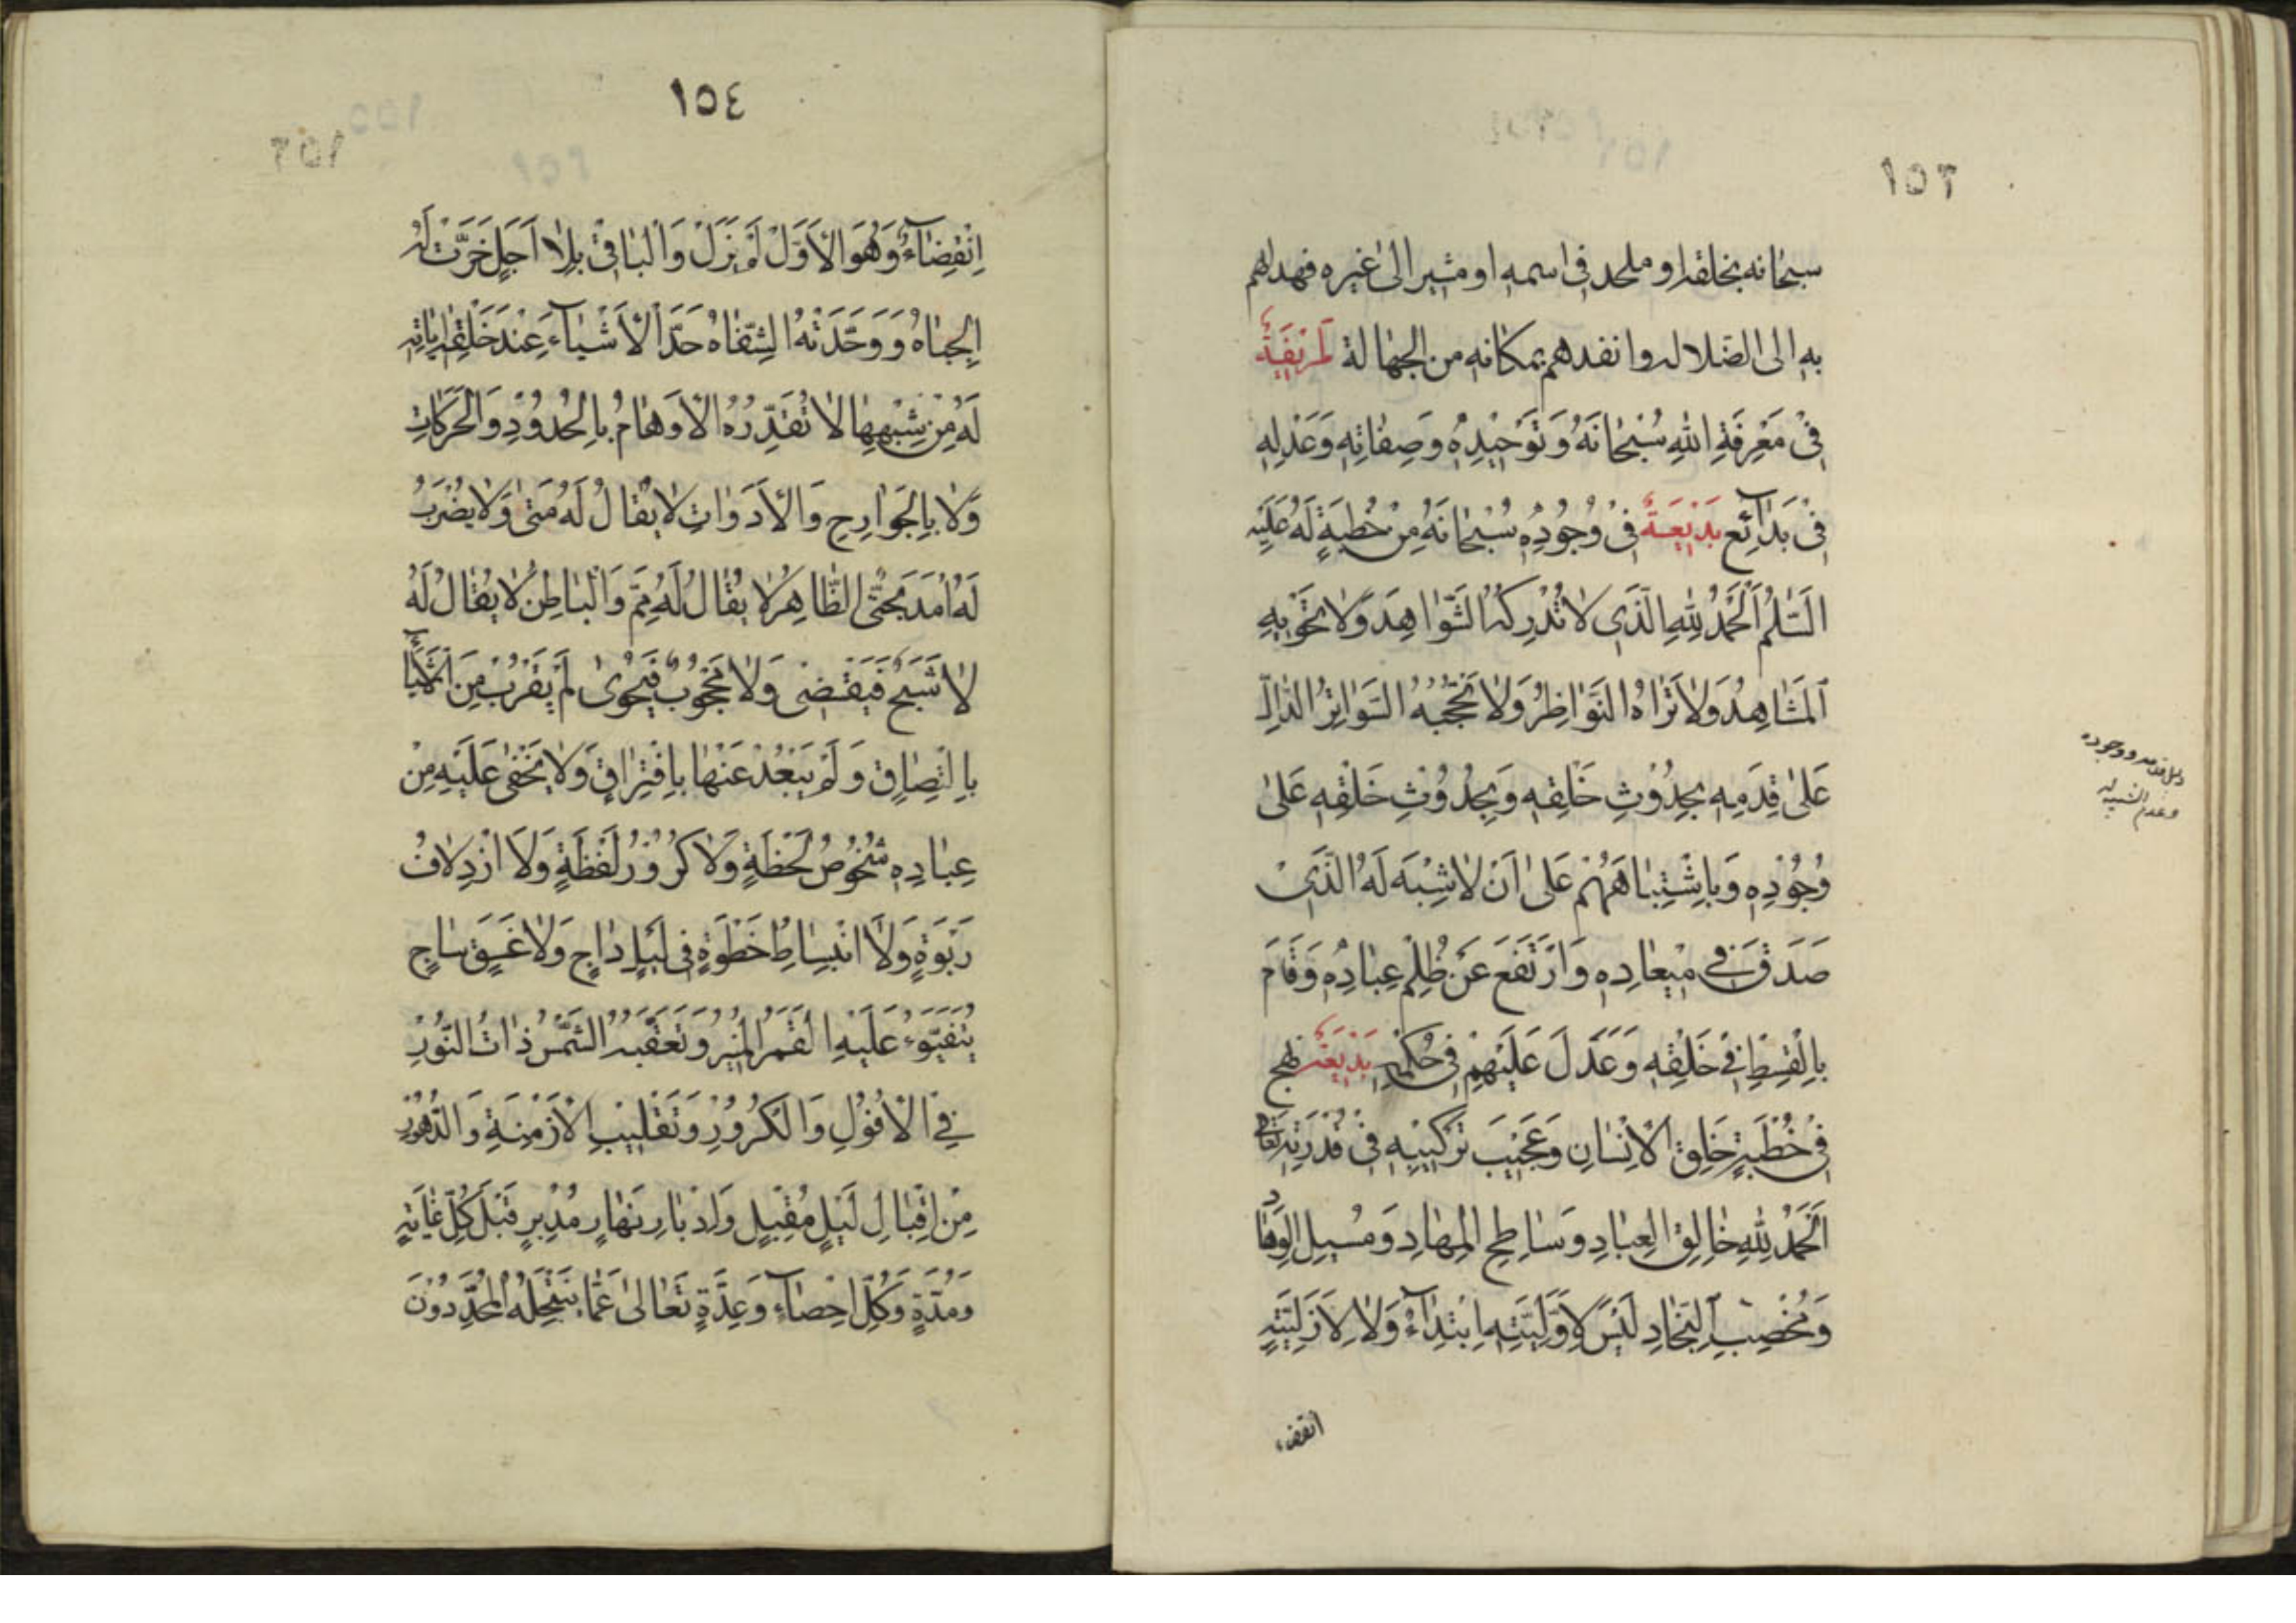 ١٥٣
سبحانه بخلقه او ملحد فى اسمه او مشير الى غيره فهداهم
به الى الضلاله وانقدهم بمكانه من الجهالة
فِىْ مَعْرِفَةِ اللهِ سُبْحٰانَهُ وَتَوْحٖيدِهٖ وَصِفٰاتِهٖ وَعَدْلِهٖ
فِىْ بَدٰآئِع بَدٖيْعَةٌ فِىْ وُجُودِهٖ سُبْحٰانَهُ مِنْ خُطْبَةٍ لَهُ عَلَيْهِ
السَّلٰمُ اَلْحَمْدُ لِلّٰهِ الَّذٖى لٰا تُدْرِكُهُ الشَّوٰاهِدُ وَلٰا تَحْوٖيهِ
الْمَشٰاهِدُ وَلٰا تَرٰاهُ النَّوٰاظِرُ وَلٰا تَحْجُبُهُ السَّوٰاتِرُ الدّٰالِّ
عَلىٰ قِدَمِهٖ بِحُدُوْثِ خَلْقِهٖ وَبِحُدُوْثِ خَلْقِهٖ عَلىٰ
وُجُوْدِهٖ وَبِاشْتِبٰاهِهِمْ عَلىٰ اَنْ لٰا شِبْهَ لَهُ الَّذٖىْ
صَدَقَ فٖى مٖيْعٰادِهٖ وَارْتَفَعَ عَنْ ظُلْمِ عِبٰادِهٖ وَقٰامَ
بِالْقِسْطِ فِىْ خَلْقِهٖ وَعَدَلَ عَلَيْهِمْ فِىْ حُكْمِهٖ بَدٖيْعَةٌ نهج
فِىْ خُطْبَةٍ خَلِق الْاِنْسٰانِ وَعَجٖيْبَ تَرْكٖيْبِهٖ فِىْ قُدْرَتِهٖ تعالى
اَلْحَمْدُ لِلّٰهِ خٰالِقِ الْعِبٰادِ وَسٰاطِحِ الْمِهٰادِ وَمُسٖيلِ الْوِهٰاد
وَمُخْصِبِ النِّجٰادِ لَيْسَ لِاَوَّلِيَّتِهِ ابْتِدٰآءٌ وَلٰا لِاَزَلِيَّتِهٖ
انقضاء
وعدم الشبيه له
١٥٤
اِنْقِضٰآءٌ وَهُوَ الْاَوَّلُ لَمْ يَزَلْ وَالْبٰاقٖىْ بِلٰا اَجَلٍ خَرَّتْ لَهُ
الْجِبٰاهُ وَوَحَّدَتْهُ الشِّفٰاهُ حَدَّ الْاَشْيٰآءَ عِنْدَ خَلْقِهٖ اِبٰانَةً
لَهُ مِنْ شِبْهِهٰا لٰا تُقَدِّرُهُ الْاَوْهٰامُ بِالْحُدُوْدِ وَالْحَرَكٰاتِ
وَلٰا بِالْجَوٰارِحِ وَالْاَدَوٰاتِ لٰا يُقٰالُ لَهُ مَتىٰ وَلٰا يُضْرَبُ
لَهُ اَمَدٌ بِحَتّٰى الظّٰاهِرُ لٰا يُقٰالُ لَهُ مِمَّ وَالْبٰاطِنُ لٰا يُقٰالُ لَهُ
لٰا شَبَحٌ فَيَقْضٖى وَلٰا مَحْجُوْبٌ فَيُحْوىٰ لَمْ يَقْرُبْ مِنَ الْاَشْيٰآءِ
بِالْتِصٰاقٍ وَلَمْ يَبْعُدْ عَنْهٰا بِافْتِرٰاقٍ وَلٰا يَخْفىٰ عَلَيْهِ مِنْ
عِبٰادِهٖ شُخُوْصُ لَحْظَةٍ وَلٰا كُرُوْرُ لَفْظَةٍ وَلَا ازْدِلٰافُ
رَبْوَةٍ وَلَا انْبِسٰاطُ خَطْوَةٍ فٖى لَيْلٍ دٰاجٍ وَلٰا غَسَقٍ سٰاجٍ
يَتَفَيَّؤُ عَلَيْهِ الْقَمَرُ الْمُنٖيْرُ وَتَعْقُبُهُ الشَّمْسُ ذٰاتُ النُّوْرِ
فِى الْاُفُوْلِ وَالْكُرُوْرِ وَتَقْلٖيْبِ الْاَزْمِنَةِ وَالدُّهُوْرِ
مِنْ اِقْبٰالِ لَيْلٍ مُقْبِلٍ وَاِدْبٰارِ نَهٰارٍ مُدْبِرٍ قَبْلَ كُلِّ غٰايَةٍ
وَمُدَّةٍ وَكُلِّ اِحْصٰآءٍ وَعِدَّةٍ تَعٰالىٰ عَمّٰا يَنْحَلُهُ الْمُحَدِّدُوْنَ